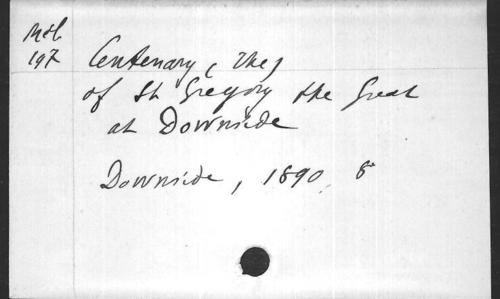 Mel
197
Centenary (The)
of St Gregory the Great
at Downside
Downside, 1890. 8°